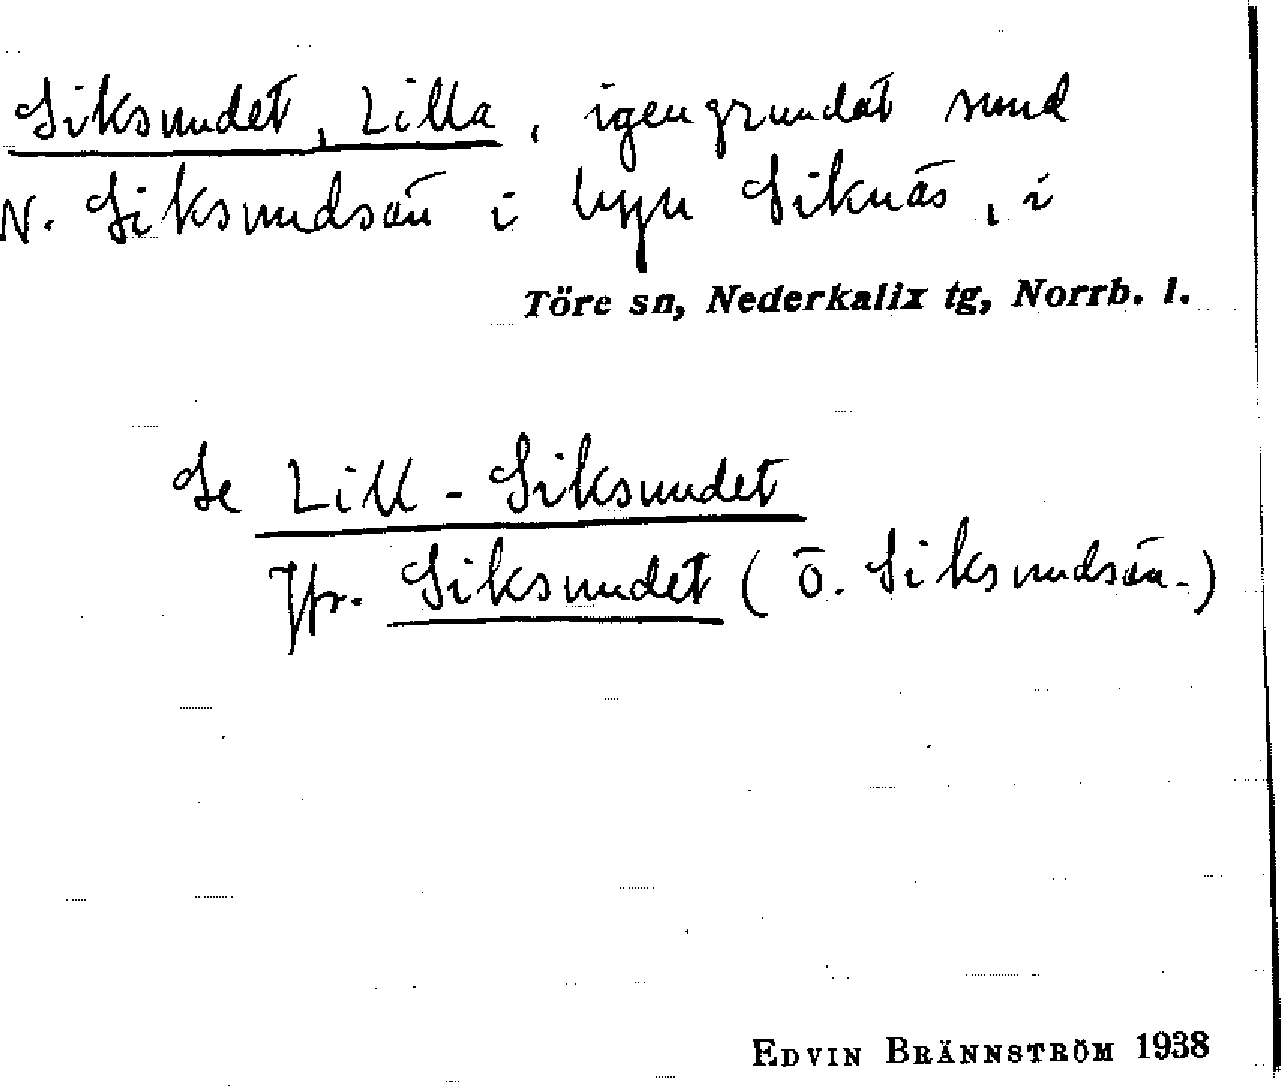 Siksundet, Lilla, igengrundat sund
N. Siksundsån i byn Siknäs, i
Töre sn, Nederkalix tg, Norrb. l.
Se Lill-Siksundet
Jfr. Siksundet (Ö. Siksundsån.)
EDVIN BRÄNNSTRÖM 1938